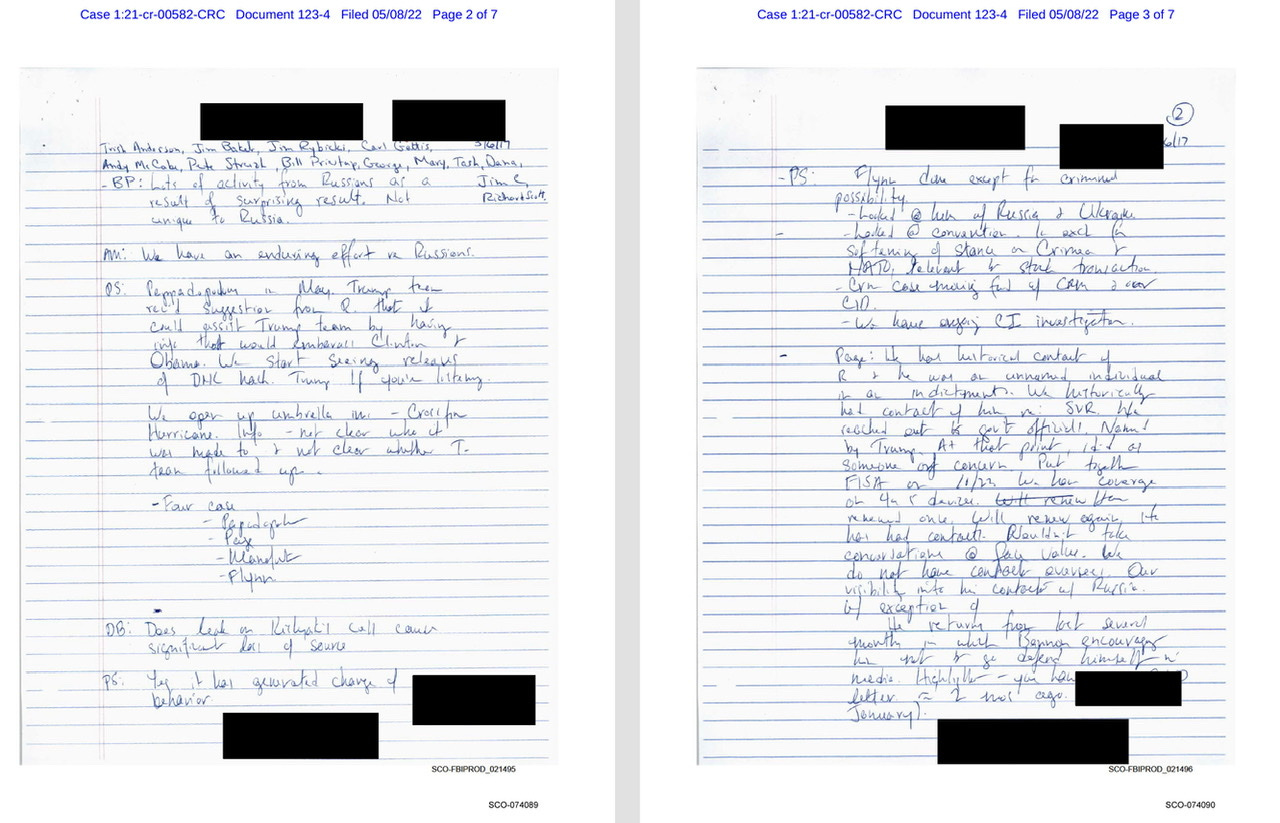 Case 1:21-cr-00582-CRC Document 123-4 Filed 05/08/22 Page 2 of 7
Trish Anderson, Jim Baker, Jim Rybicki, Carl Gattis, 3/6/17
Andy McCabe, Pete Strzok, Bill Priestap, George, Mary, Tash, Dana,
Jim C,
Richard Scott.
- BP: Lots of activity from Russians as a
result of surprising result. Not
unique to Russia.
AM: We have an enduring effort re Russians.
PS: in May. Trump team
rec'd suggestion from R. that it
could assist Trump team by having
info that would embarrass Clinton &
Obama. We start seeing releases
of DNC hack. Trump If you're listening.
We open up umbrella inv - Crossfire
Hurricane. Info - not clear who it
was made to & not clear whether T-
team followed up.
- Four case
- Papadop
- Page
- Manafort
- Flynn
DB: Does leak on Kislyak's call cause
significant loss of source
PS: Yes it has generated change of
behavior.
SCO-FBIPROD_021495
SCO-074089
Case 1:21-cr-00582-CRC Document 123-4 Filed 05/08/22 Page 3 of 7
2
6/17
- PS: Flynn done except for criminal
possibility.
- Looked @ him w/ Russia & Ukraine.
- Looked @ convention. Is
softening of stance on Crimea &
NATO, relevant to transaction
- Crm case moving fwd w/ CRM & our
CID.
- We have ongoing CI investigation.
- Page: He has historical contact w/
R & he was an unnamed individual
in an indictment. We historically
had contact w/ him re: SVR. He
reached out to gov't officials. Named
by Trump. At that point, id'd as
someone of concern. Put together
FISA on We have coverage
on 4 or 5 devices. Will renew
renewed once, will renew again. He
has had contact. Wouldn't take
conversations @ face value. We
do not have contact overseas. Our
visibility into his contacts w/ Russia.
w/ exception of
He returns from last several
months in which Bannon encourages
him not to go defend himself in
media. Highlights - you have
letter ≈ 2 mos ago.
January).
SCO-FBIPROD_021496
SCO-074090